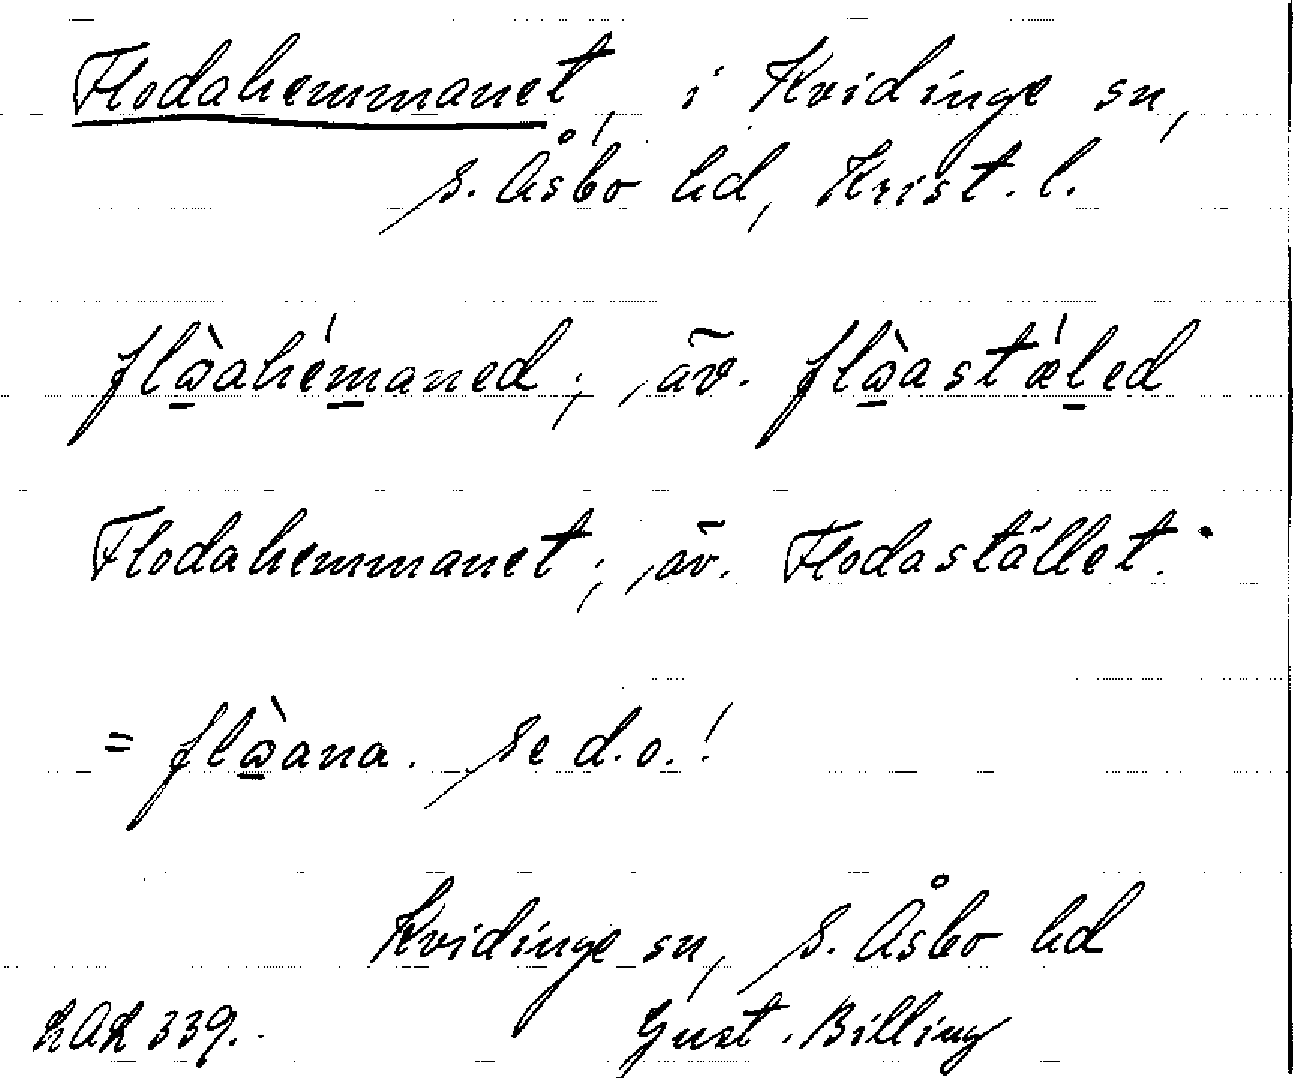 Flodahemmanet, i Kvidinge sn,
S. Åsbo hd, Krist. l.
flὼ̲ahém̲aned; äv. flὼ̲astǽl̲ed
Flodahemmanet; äv. Flodastället.
= flὼ̲ana. Se d.o.!
Kvidinge sn, S. Åsbo hd
LAL 339.
Gust. Billing